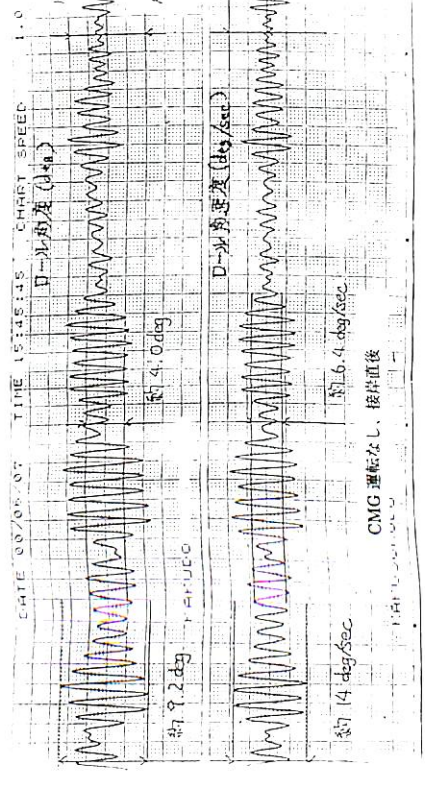 DATE 00/06/07 TIME 15:45:45 CHART SPEED 1.0
ロール角度 (deg)
約 9.2 deg
約 4.0 deg
ロール角速度 (deg/sec)
約 14 deg/sec
約 6.4 deg/sec
CMG 運転なし、接岸直後